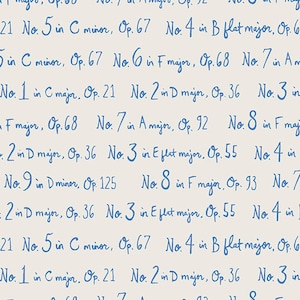 major, Op. 68 No. 7 in A major, Op. 92
21 No. 5 in C minor, Op. 67 No. 4 in B flat major, Op. 6
5 in C minor, Op. 67 No. 6 in F major, Op. 68 No. 7 in A m
No. 1 in C major, Op. 21 No. 2 in D major, Op. 36 No. 3 in
n F major, Op. 68 No. 7 in A major, Op. 92 No. 8 in F m
. 2 in D major, Op. 36 No. 3 in E flat major, Op. 55 No. 4 in
No. 9 in D minor, Op. 125 No. 8 in F major, Op. 93 No. 7
. 2 in D major, Op. 36 No. 3 in E flat major, Op. 55 No. 4 in
21 No. 5 in C minor, Op. 67 No. 4 in B flat major, Op. 6
No. 1 in C major, Op. 21 No. 2 in D major, Op. 36 No. 3 in